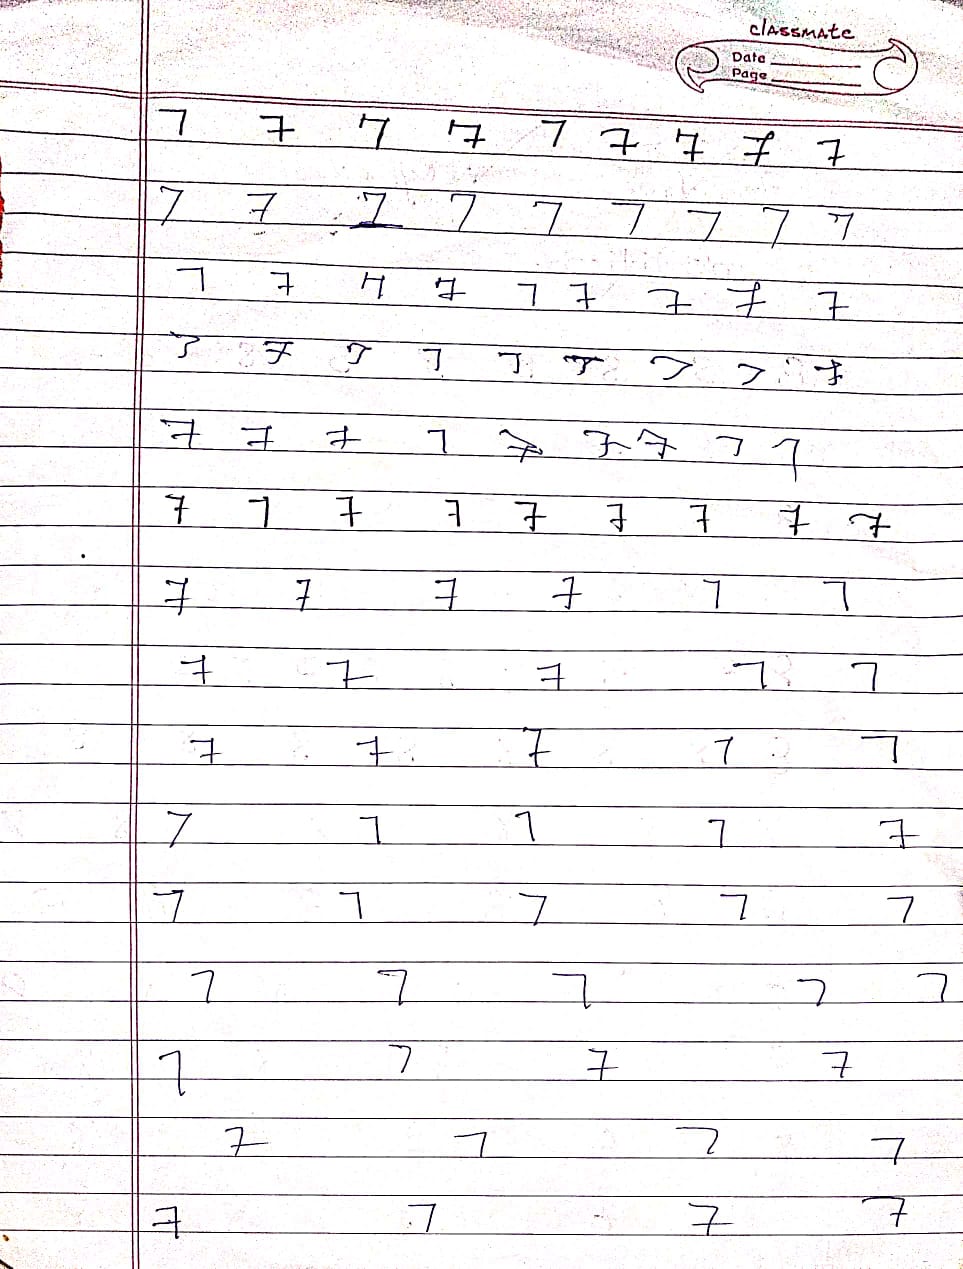 classmate
Date
Page
7 7 7 7 7 7 7 7 7
7 7 7 7 7 7 7 7 7
7 7 7 7 7 7 7 7 7
7 7 7 7 7 7 7 7 7
7 7 7 7 7 7 7 7 7
7 7 7 7 7 7 7 7 7
7 7 7 7 7 7
7 7 7 7 7
7 7 7 7 7
7 7 7 7 7
7 7 7 7 7
7 7 7 7 7
7 7 7 7
7 7 7 7
7 7 7 7